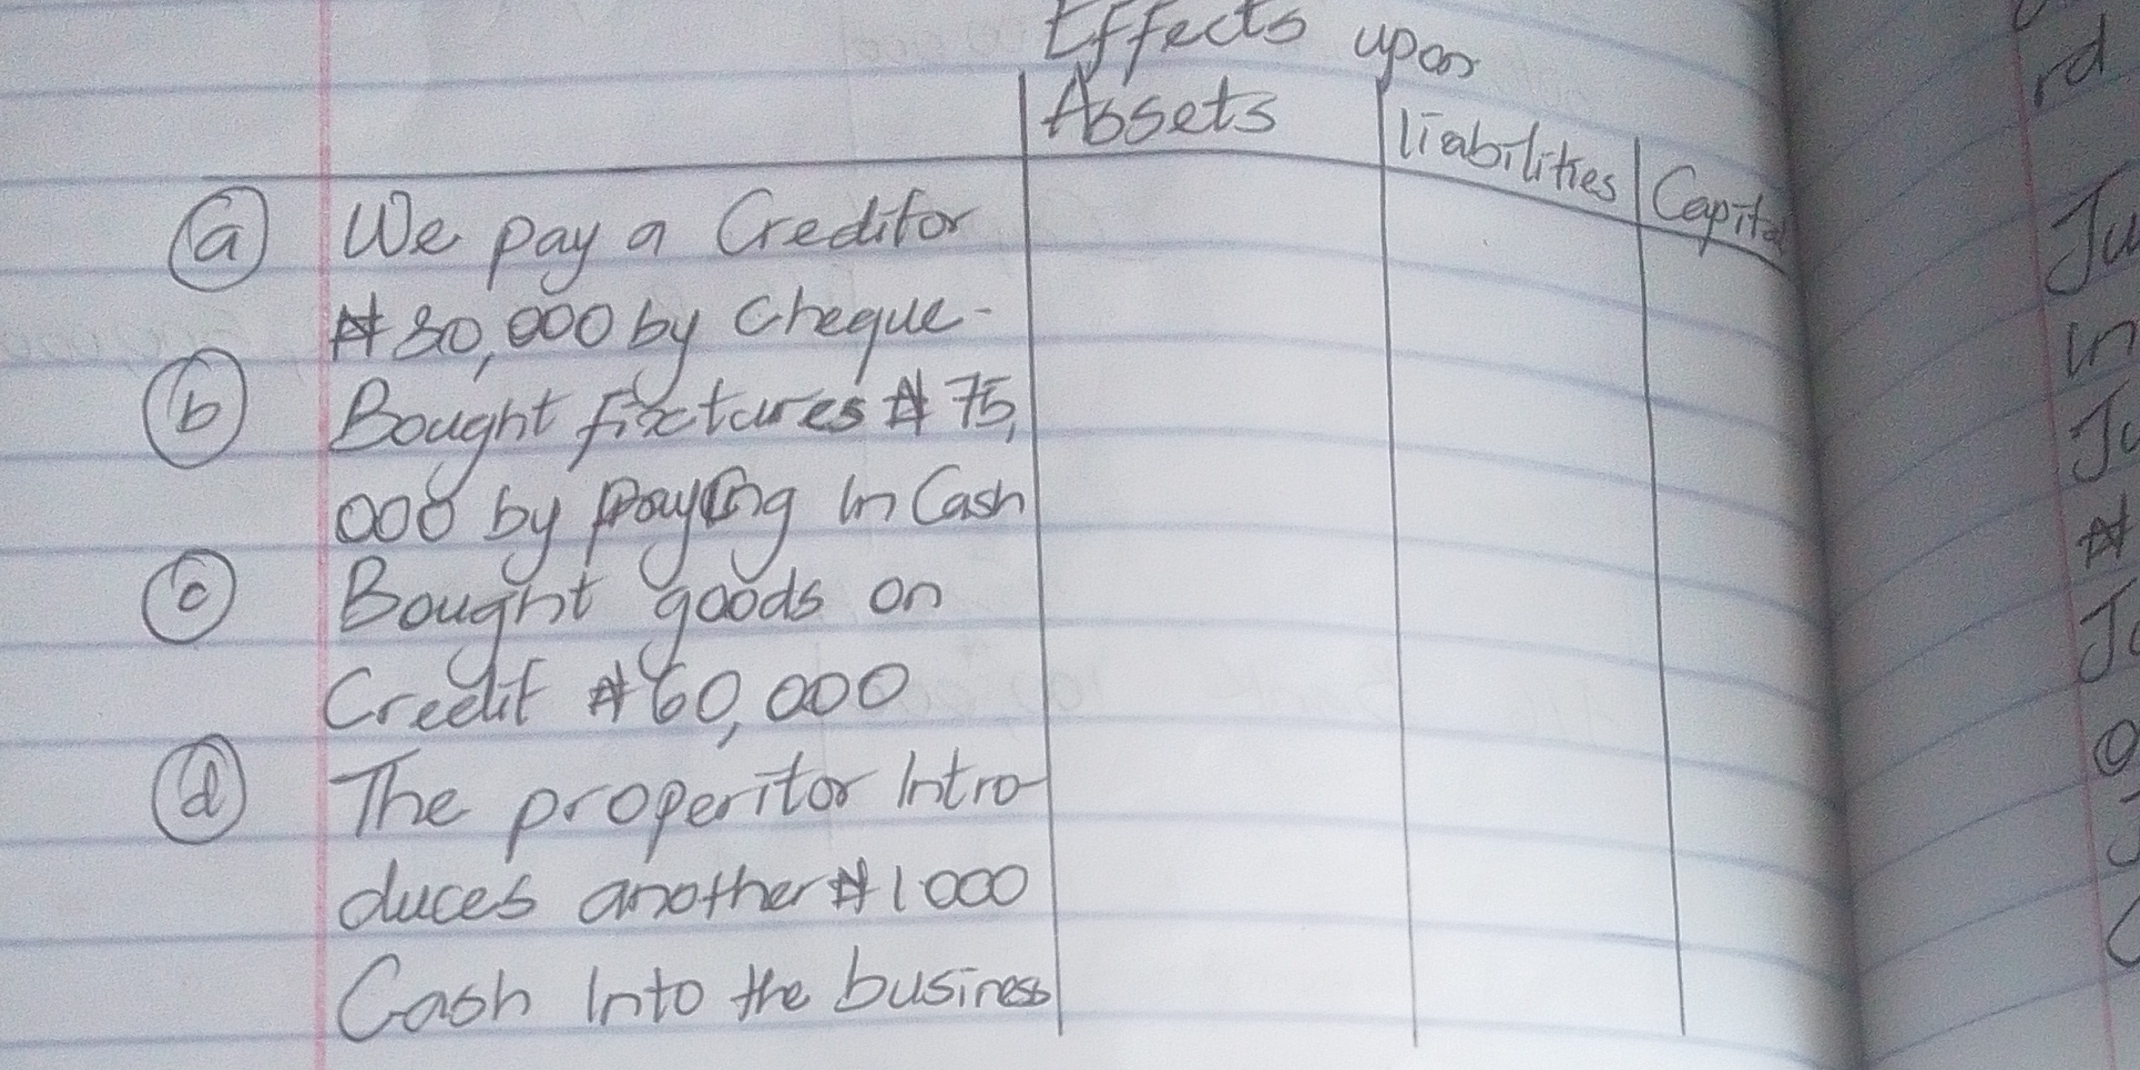 Effects upon
Assets liabilities Capital
a We pay a Creditor
₦80,000 by cheque-
b Bought fixtures ₦75,
000 by paying in Cash
c Bought goods on
Credit ₦60,000
d The properitor Intro-
duces another ₦1000
Cash Into the business
rd
Ju
In
₦